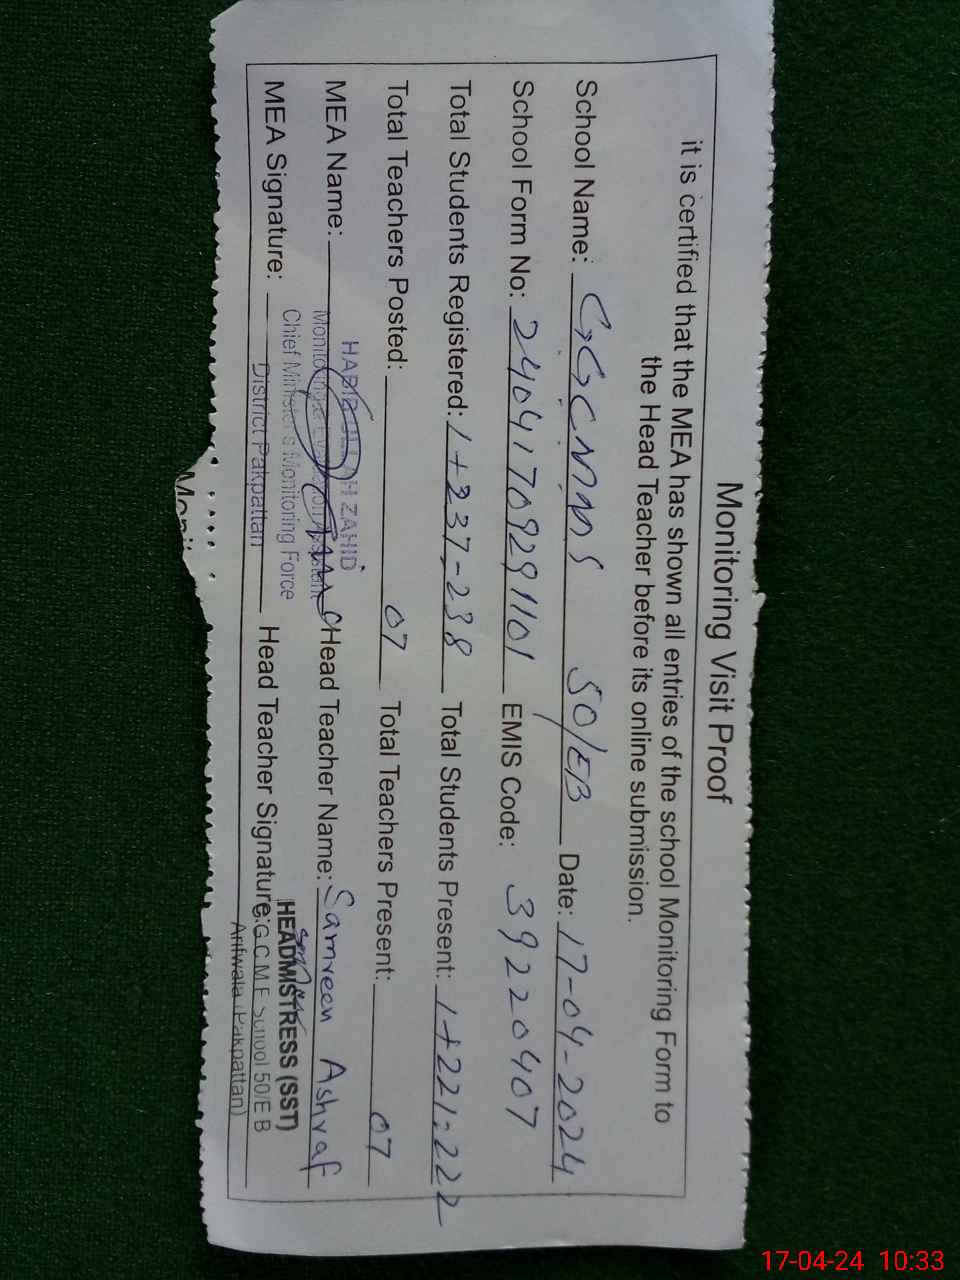 Monitoring Visit Proof
it is certified that the MEA has shown all entries of the school Monitoring Form to
the Head Teacher before its online submission.
School Name: GGCMMS 50/EB Date: 17-04-2024
School Form No: 24041709291101 EMIS Code: 39220407
Total Students Registered: 1+237=238 Total Students Present: 1+221=222
Total Teachers Posted: 07 Total Teachers Present: 07
MEA Name: Head Teacher Name: Samreen Ashraf
HABIBULLAH ZAHID
Monitoring & Evaluation Assistant
Chief Minister's Monitoring Force
District Pakpattan
MEA Signature: Head Teacher Signature:
HEADMISTRESS (SST)
G.C.M.E School 50/E B
Arifwala (Pakpattan)
17-04-24 10:33